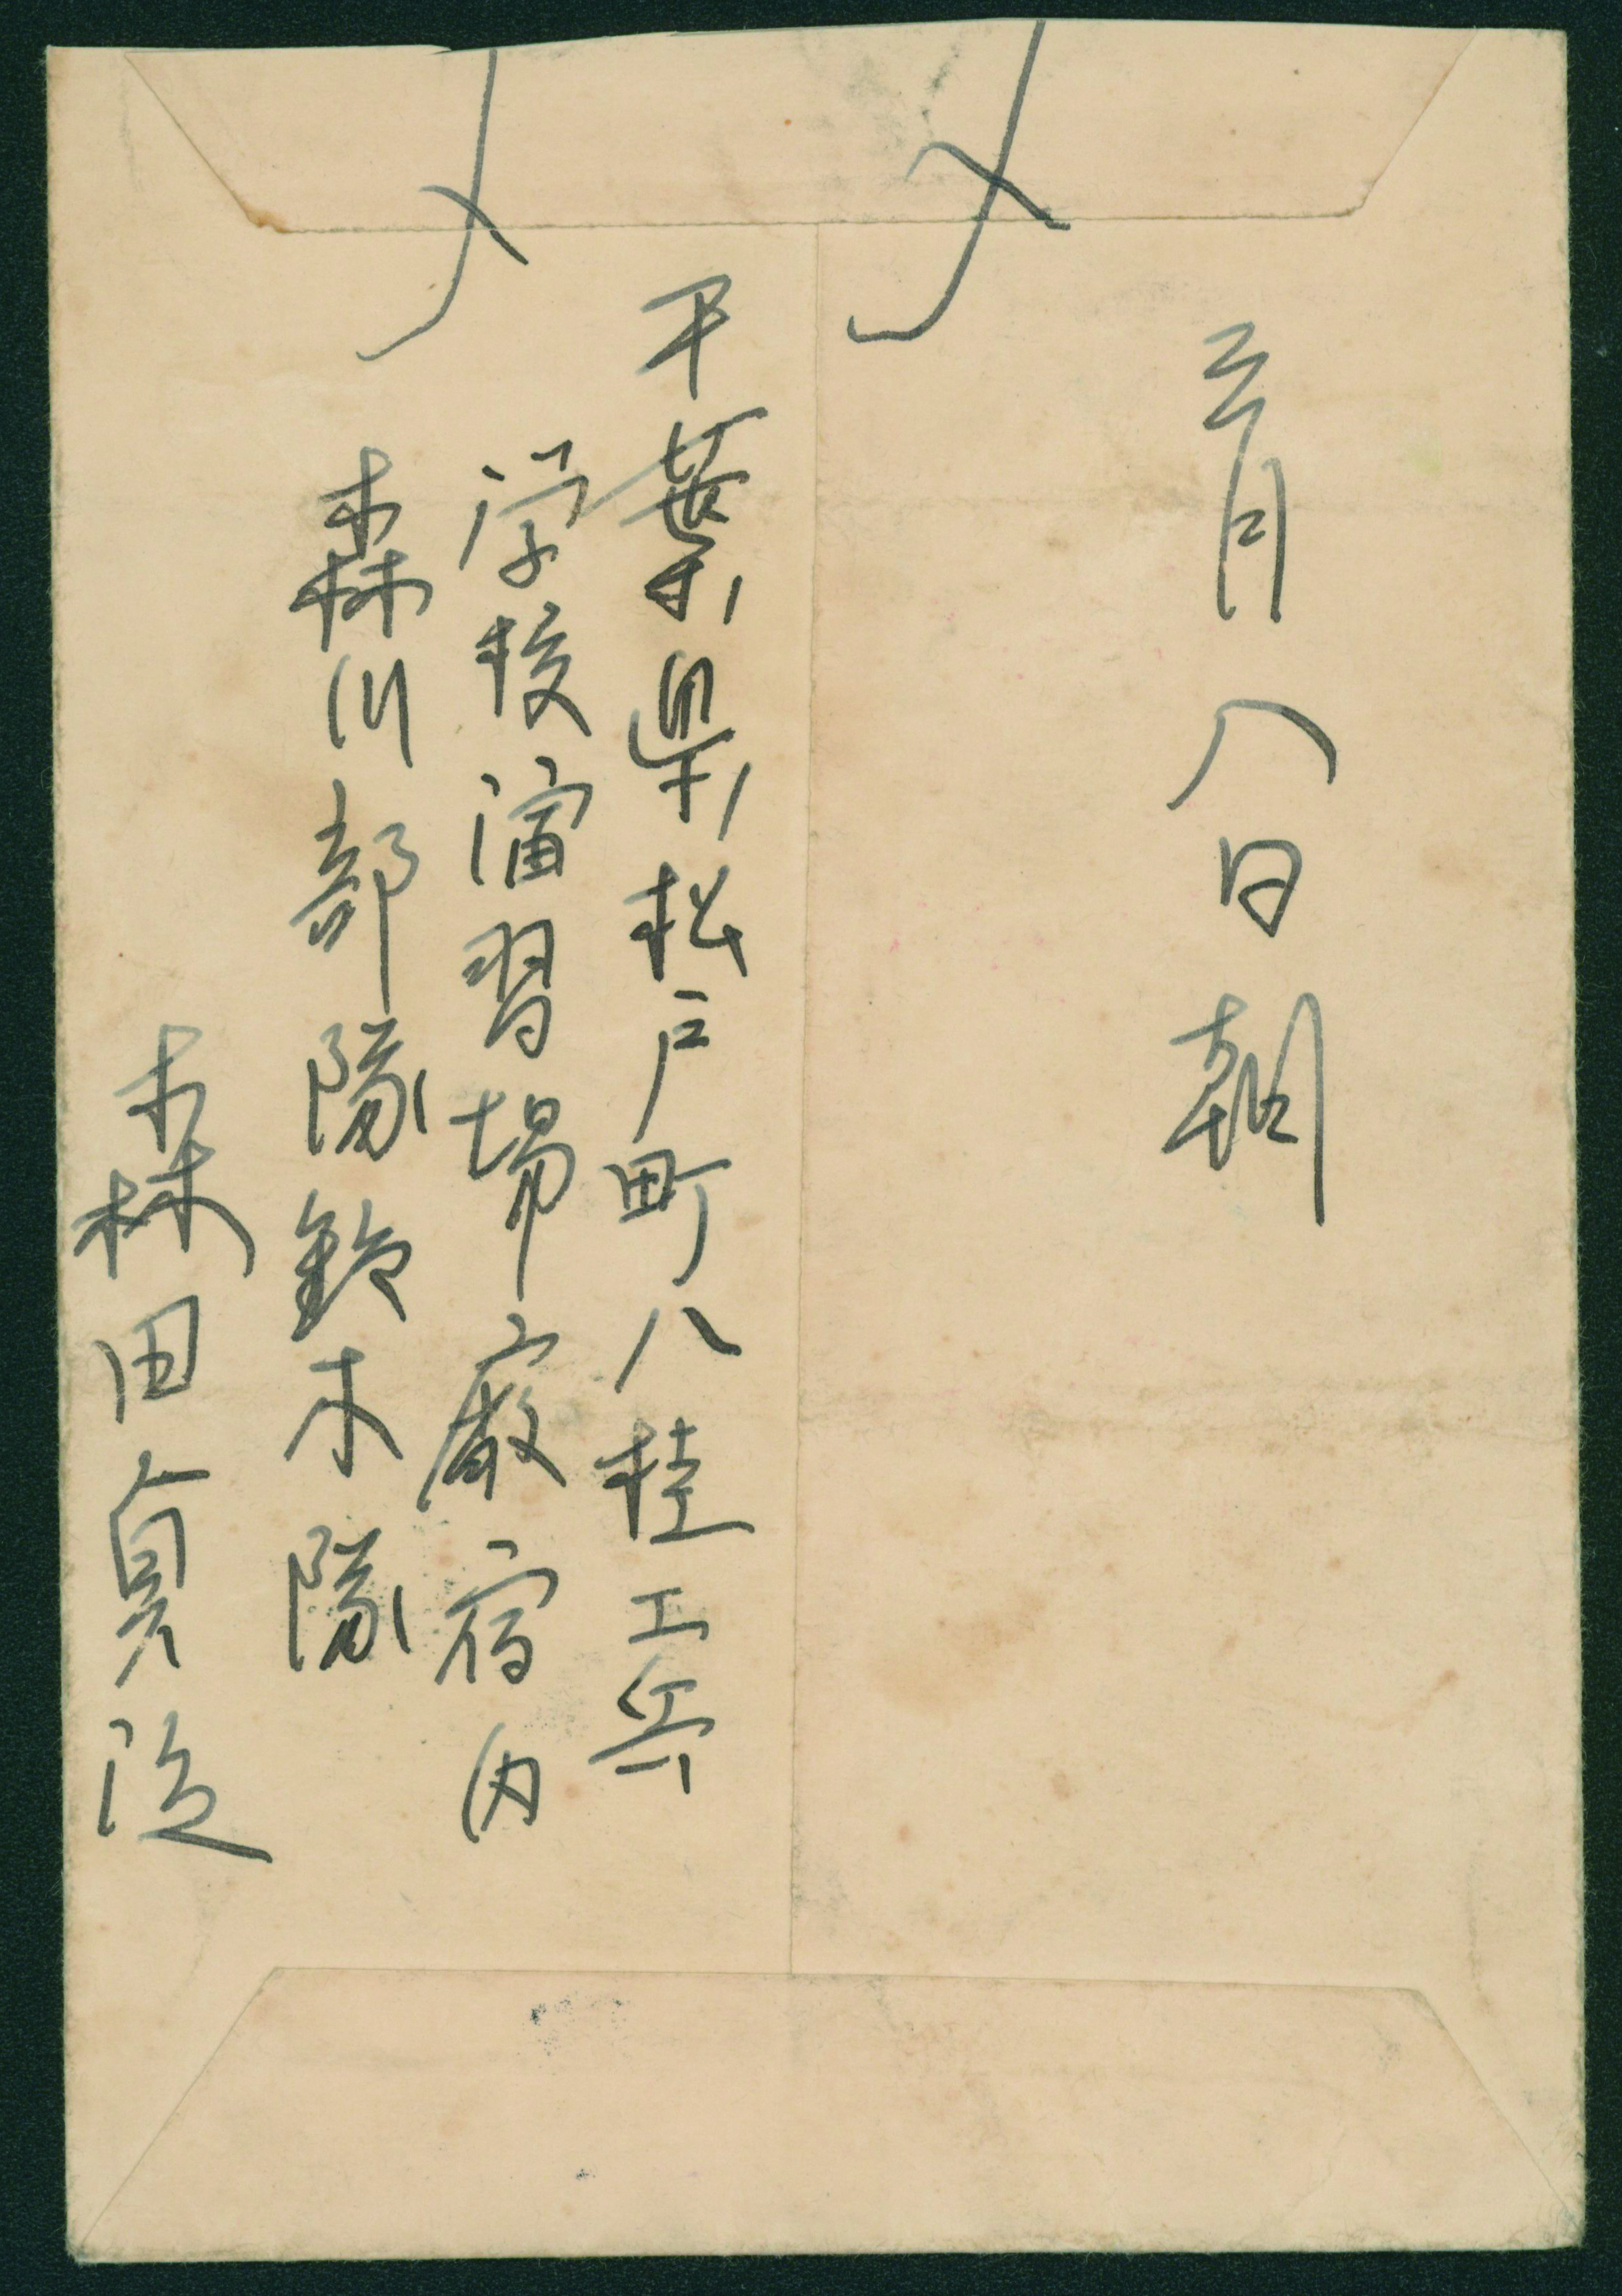 〆
〆
三月八日朝
千葉県松戸町八桂工兵
学校演習場廠宿内
森川部隊鈴木隊
森田